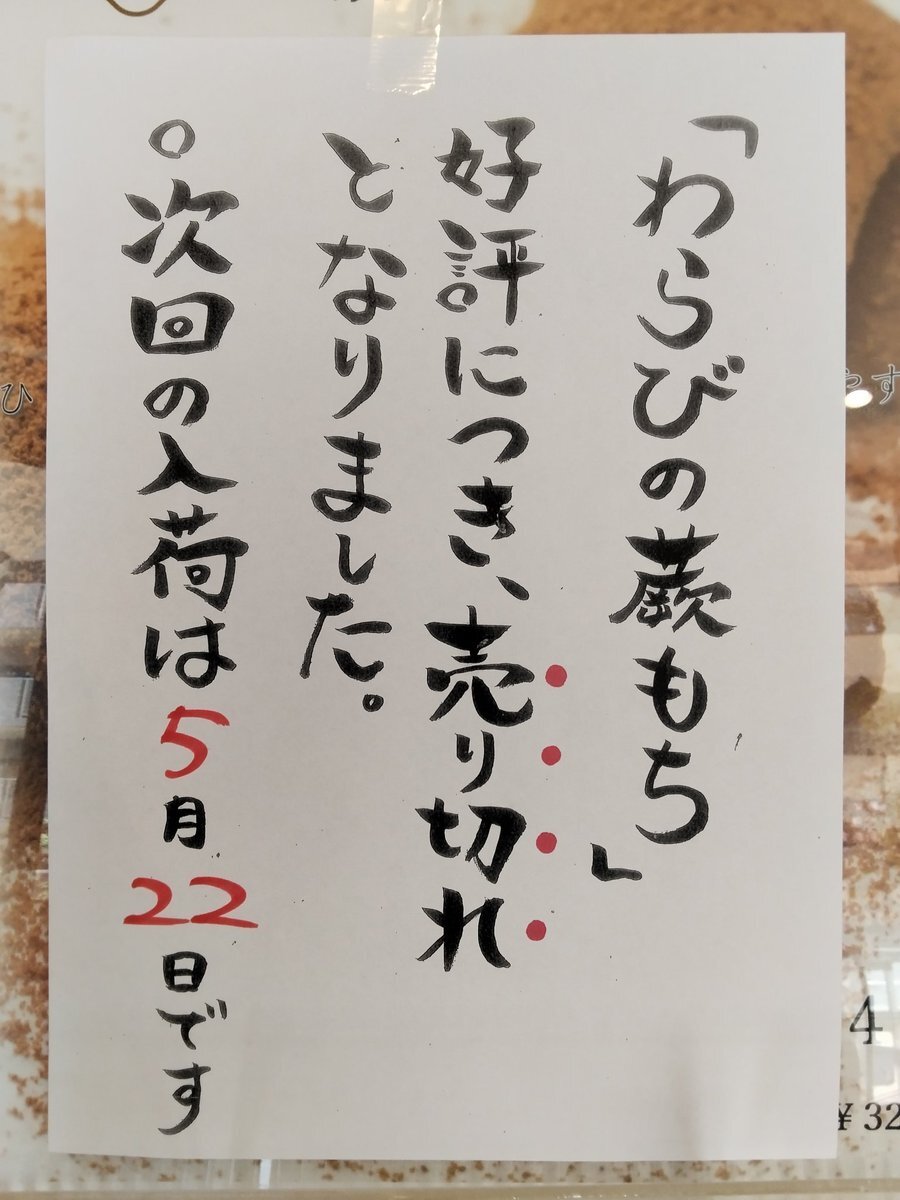 「わらびの蕨もち」
好評につき、売り切れ
となりました。
○次回の入荷は5月22日です
ひ
やす
4
¥32